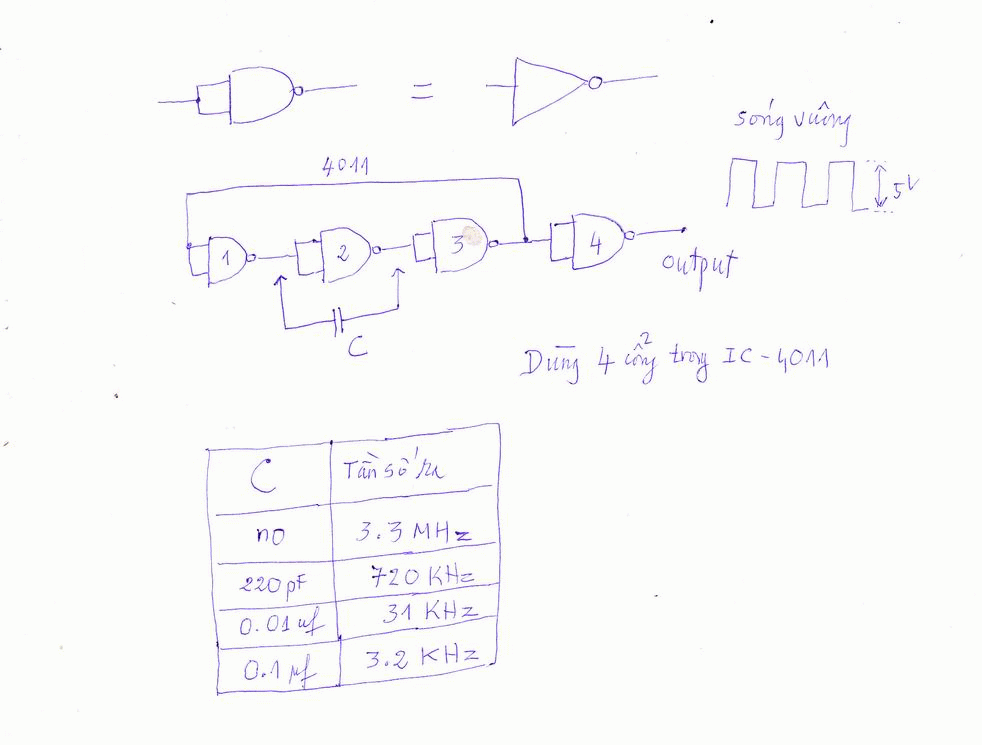 =
sóng vuông
5V
4011
1
2
3
4
output
C
Dùng 4 cổng trong IC-4011
C Tần số ra
no 3.3 MHz
220pF 720 KHz
0.01 uf 31 KHz
0.1 µf 3.2 KHz